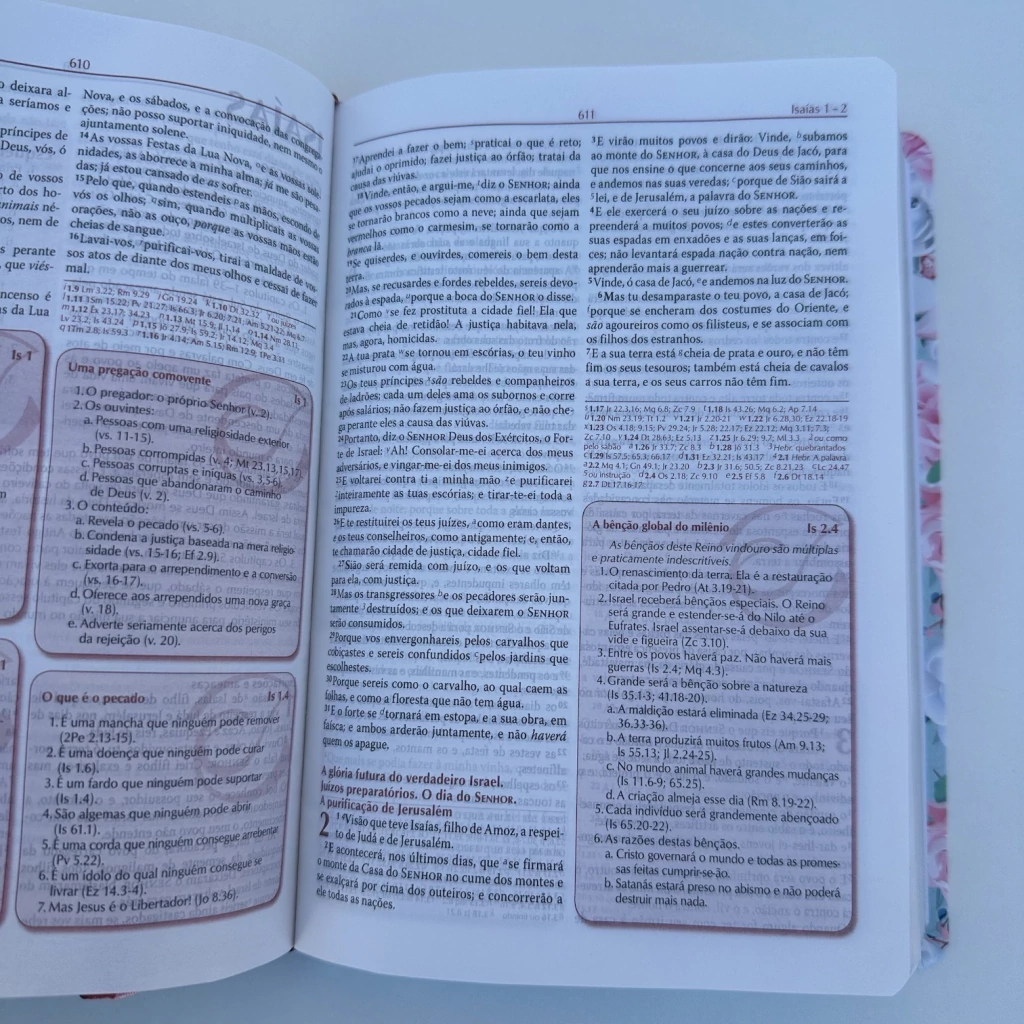 610
o deixara al-
a seríamos e
príncipes de
Deus, vós, ó
o de vossos
rto dos ho-
animais né-
os, nem de
s perante
, que viés-
ncenso é
as da Lua
Is 1
Nova, e os sábados, e a convocação das congrega-
ções; não posso suportar iniquidade, nem mesmo o
ajuntamento solene.
14As vossas Festas da Lua Nova, e as vossas sole-
nidades, as aborrece a minha alma; já me são pesa-
das; já estou cansado de as sofrer.
15Pelo que, quando estendeis as mãos, escondo de
vós os olhos; sim, quando multiplicais as vossas
orações, não as ouço, porque as vossas mãos estão
cheias de sangue.
16Lavai-vos, purificai-vos, tirai a maldade de vos-
sos atos de diante dos meus olhos e cessai de fazer
mal.
1.9 Lm 3.22; Rm 9.29 Gn 19.24 1.10 Dt 32.32 ou num
1.11 1Sm 15.22; Pv 21.27; Is 66.3; Jr 6.20; 7.21; Am 5.21-22; Mq 6.7
1.12 Êx 23.17; 34.23 1.13 Mt 15.9; Jl 1.14 1.14 Nm 28.11;
Lv 23.2; Is 43.24 1.15 Jó 27.9; Is 59.2; Jr 14.12; Mq 3.4
q 1Tm 2.8; Is 59.3 1.16 Jr 4.14; Am 5.15; Rm 12.9; 1Pe 3.11
Uma pregação comovente Is 1
1. O pregador: o próprio Senhor (v. 2).
2. Os ouvintes:
a. Pessoas com uma religiosidade exterior
(vs. 11-15).
b. Pessoas corrompidas (v. 4; Mt 23.13,15,17).
c. Pessoas corruptas e iníquas (vs. 3,5-6).
d. Pessoas que abandonaram o caminho
de Deus (v. 2).
3. O conteúdo:
a. Revela o pecado (vs. 5-6).
b. Condena a justiça baseada na mera religio-
sidade (vs. 15-16; Ef 2.9).
c. Exorta para o arrependimento e a conversão
(vs. 16-17).
d. Oferece aos arrependidos uma nova graça
(v. 18).
e. Adverte seriamente acerca dos perigos
da rejeição (v. 20).
O que é o pecado Is 1.4
1. É uma mancha que ninguém pode remover
(2Pe 2.13-15).
2. É uma doença que ninguém pode curar
(Is 1.6).
3. É um fardo que ninguém pode suportar
(Is 1.4).
4. São algemas que ninguém pode abrir
(Is 61.1).
5. É uma corda que ninguém consegue arrebentar
(Pv 5.22).
6. É um ídolo do qual ninguém consegue se
livrar (Ez 14.3-4).
7. Mas Jesus é o Libertador! (Jo 8.36).
611 Isaías 1 - 2
17Aprendei a fazer o bem; praticai o que é reto;
ajudai o oprimido; fazei justiça ao órfão; tratai da
causa das viúvas.
18Vinde, então, e argui-me, diz o SENHOR; ainda
que os vossos pecados sejam como a escarlata, eles
se tornarão brancos como a neve; ainda que sejam
vermelhos como o carmesim, se tornarão como a
branca lã.
19Se quiserdes, e ouvirdes, comereis o bem desta
terra.
20Mas, se recusardes e fordes rebeldes, sereis devo-
rados à espada, porque a boca do SENHOR o disse.
21Como se fez prostituta a cidade fiel! Ela que
estava cheia de retidão! A justiça habitava nela,
mas, agora, homicidas.
22A tua prata se tornou em escórias, o teu vinho
se misturou com água.
23Os teus príncipes são rebeldes e companheiros
de ladrões; cada um deles ama os subornos e corre
após salários; não fazem justiça ao órfão, e não che-
ga perante eles a causa das viúvas.
24Portanto, diz o SENHOR Deus dos Exércitos, o For-
te de Israel: Ah! Consolar-me-ei acerca dos meus
adversários, e vingar-me-ei dos meus inimigos.
25E voltarei contra ti a minha mão e purificarei
inteiramente as tuas escórias; e tirar-te-ei toda a
impureza.
26E te restituirei os teus juízes, como eram dantes,
e os teus conselheiros, como antigamente; e, então,
te chamarão cidade de justiça, cidade fiel.
27Sião será remida com juízo, e os que voltam
para ela, com justiça.
28Mas os transgressores e os pecadores serão jun-
tamente destruídos; e os que deixarem o SENHOR
serão consumidos.
29Porque vos envergonhareis pelos carvalhos que
cobiçastes e sereis confundidos pelos jardins que
escolhestes.
30Porque sereis como o carvalho, ao qual caem as
folhas, e como a floresta que não tem água.
31E o forte se tornará em estopa, e a sua obra, em
faísca; e ambos arderão juntamente, e não haverá
quem os apague.
A glória futura do verdadeiro Israel.
Juízos preparatórios. O dia do SENHOR.
A purificação de Jerusalém
2 1Visão que teve Isaías, filho de Amoz, a respei-
to de Judá e de Jerusalém.
2E acontecerá, nos últimos dias, que se firmará
o monte da Casa do SENHOR no cume dos montes e
se exalçará por cima dos outeiros; e concorrerão a
ele todas as nações.
3E virão muitos povos e dirão: Vinde, subamos
ao monte do SENHOR, à casa do Deus de Jacó, para
que nos ensine o que concerne aos seus caminhos,
e andemos nas suas veredas; porque de Sião sairá a
lei, e de Jerusalém, a palavra do SENHOR.
4E ele exercerá o seu juízo sobre as nações e re-
preenderá a muitos povos; e estes converterão as
suas espadas em enxadões e as suas lanças, em foi-
ces; não levantará espada nação contra nação, nem
aprenderão mais a guerrear.
5Vinde, ó casa de Jacó, e andemos na luz do SENHOR.
6Mas tu desamparaste o teu povo, a casa de Jacó;
porque se encheram dos costumes do Oriente, e
são agoureiros como os filisteus, e se associam com
os filhos dos estranhos.
7E a sua terra está cheia de prata e ouro, e não têm
fim os seus tesouros; também está cheia de cavalos
a sua terra, e os seus carros não têm fim.
1.17 Jr 22.3,16; Mq 6.8; Zc 7.9 1.18 Is 43.26; Mq 6.2; Ap 7.14
1.20 Nm 23.19; Tt 1.2 1.21 Jr 2.20-21 1.22 Jr 6.28,30; Ez 22.18-19
1.23 Os 4.18; 9.15; Pv 29.24; Jr 5.28; 22.17; Ez 22.12; Mq 3.11; 7.3;
Zc 7.10 1.24 Dt 28.63; Ez 5.13 1.25 Jr 6.29; 9.7; Ml 3.3 ou como
pelo sabão 1.26 Jr 33.7; Zc 8.3 1.28 Jó 31.3 Hebr. quebrantados
1.29 Is 57.5; 65.3; 66.17 1.31 Ez 32.21; Is 43.17 2.1 Hebr. A palavra
2.2 Mq 4.1; Gn 49.1; Jr 23.20 2.3 Jr 31.6; 50.5; Zc 8.21,23 Lc 24.47
ou instrução 2.4 Os 2.18; Zc 9.10 2.5 Ef 5.8 2.6 Dt 18.14
2.7 Dt 17.16-17
A bênção global do milênio Is 2.4
As bênçãos deste Reino vindouro são múltiplas
e praticamente indescritíveis.
1. O renascimento da terra. Ela é a restauração
citada por Pedro (At 3.19-21).
2. Israel receberá bênçãos especiais. O Reino
será grande e estender-se-á do Nilo até o
Eufrates. Israel assentar-se-á debaixo da sua
vide e figueira (Zc 3.10).
3. Entre os povos haverá paz. Não haverá mais
guerras (Is 2.4; Mq 4.3).
4. Grande será a bênção sobre a natureza
(Is 35.1-3; 41.18-20).
a. A maldição estará eliminada (Ez 34.25-29;
36.33-36).
b. A terra produzirá muitos frutos (Am 9.13;
Is 55.13; Jl 2.24-25).
c. No mundo animal haverá grandes mudanças
(Is 11.6-9; 65.25).
d. A criação almeja esse dia (Rm 8.19-22).
5. Cada indivíduo será grandemente abençoado
(Is 65.20-22).
6. As razões destas bênçãos.
a. Cristo governará o mundo e todas as promes-
sas feitas cumprir-se-ão.
b. Satanás estará preso no abismo e não poderá
destruir mais nada.